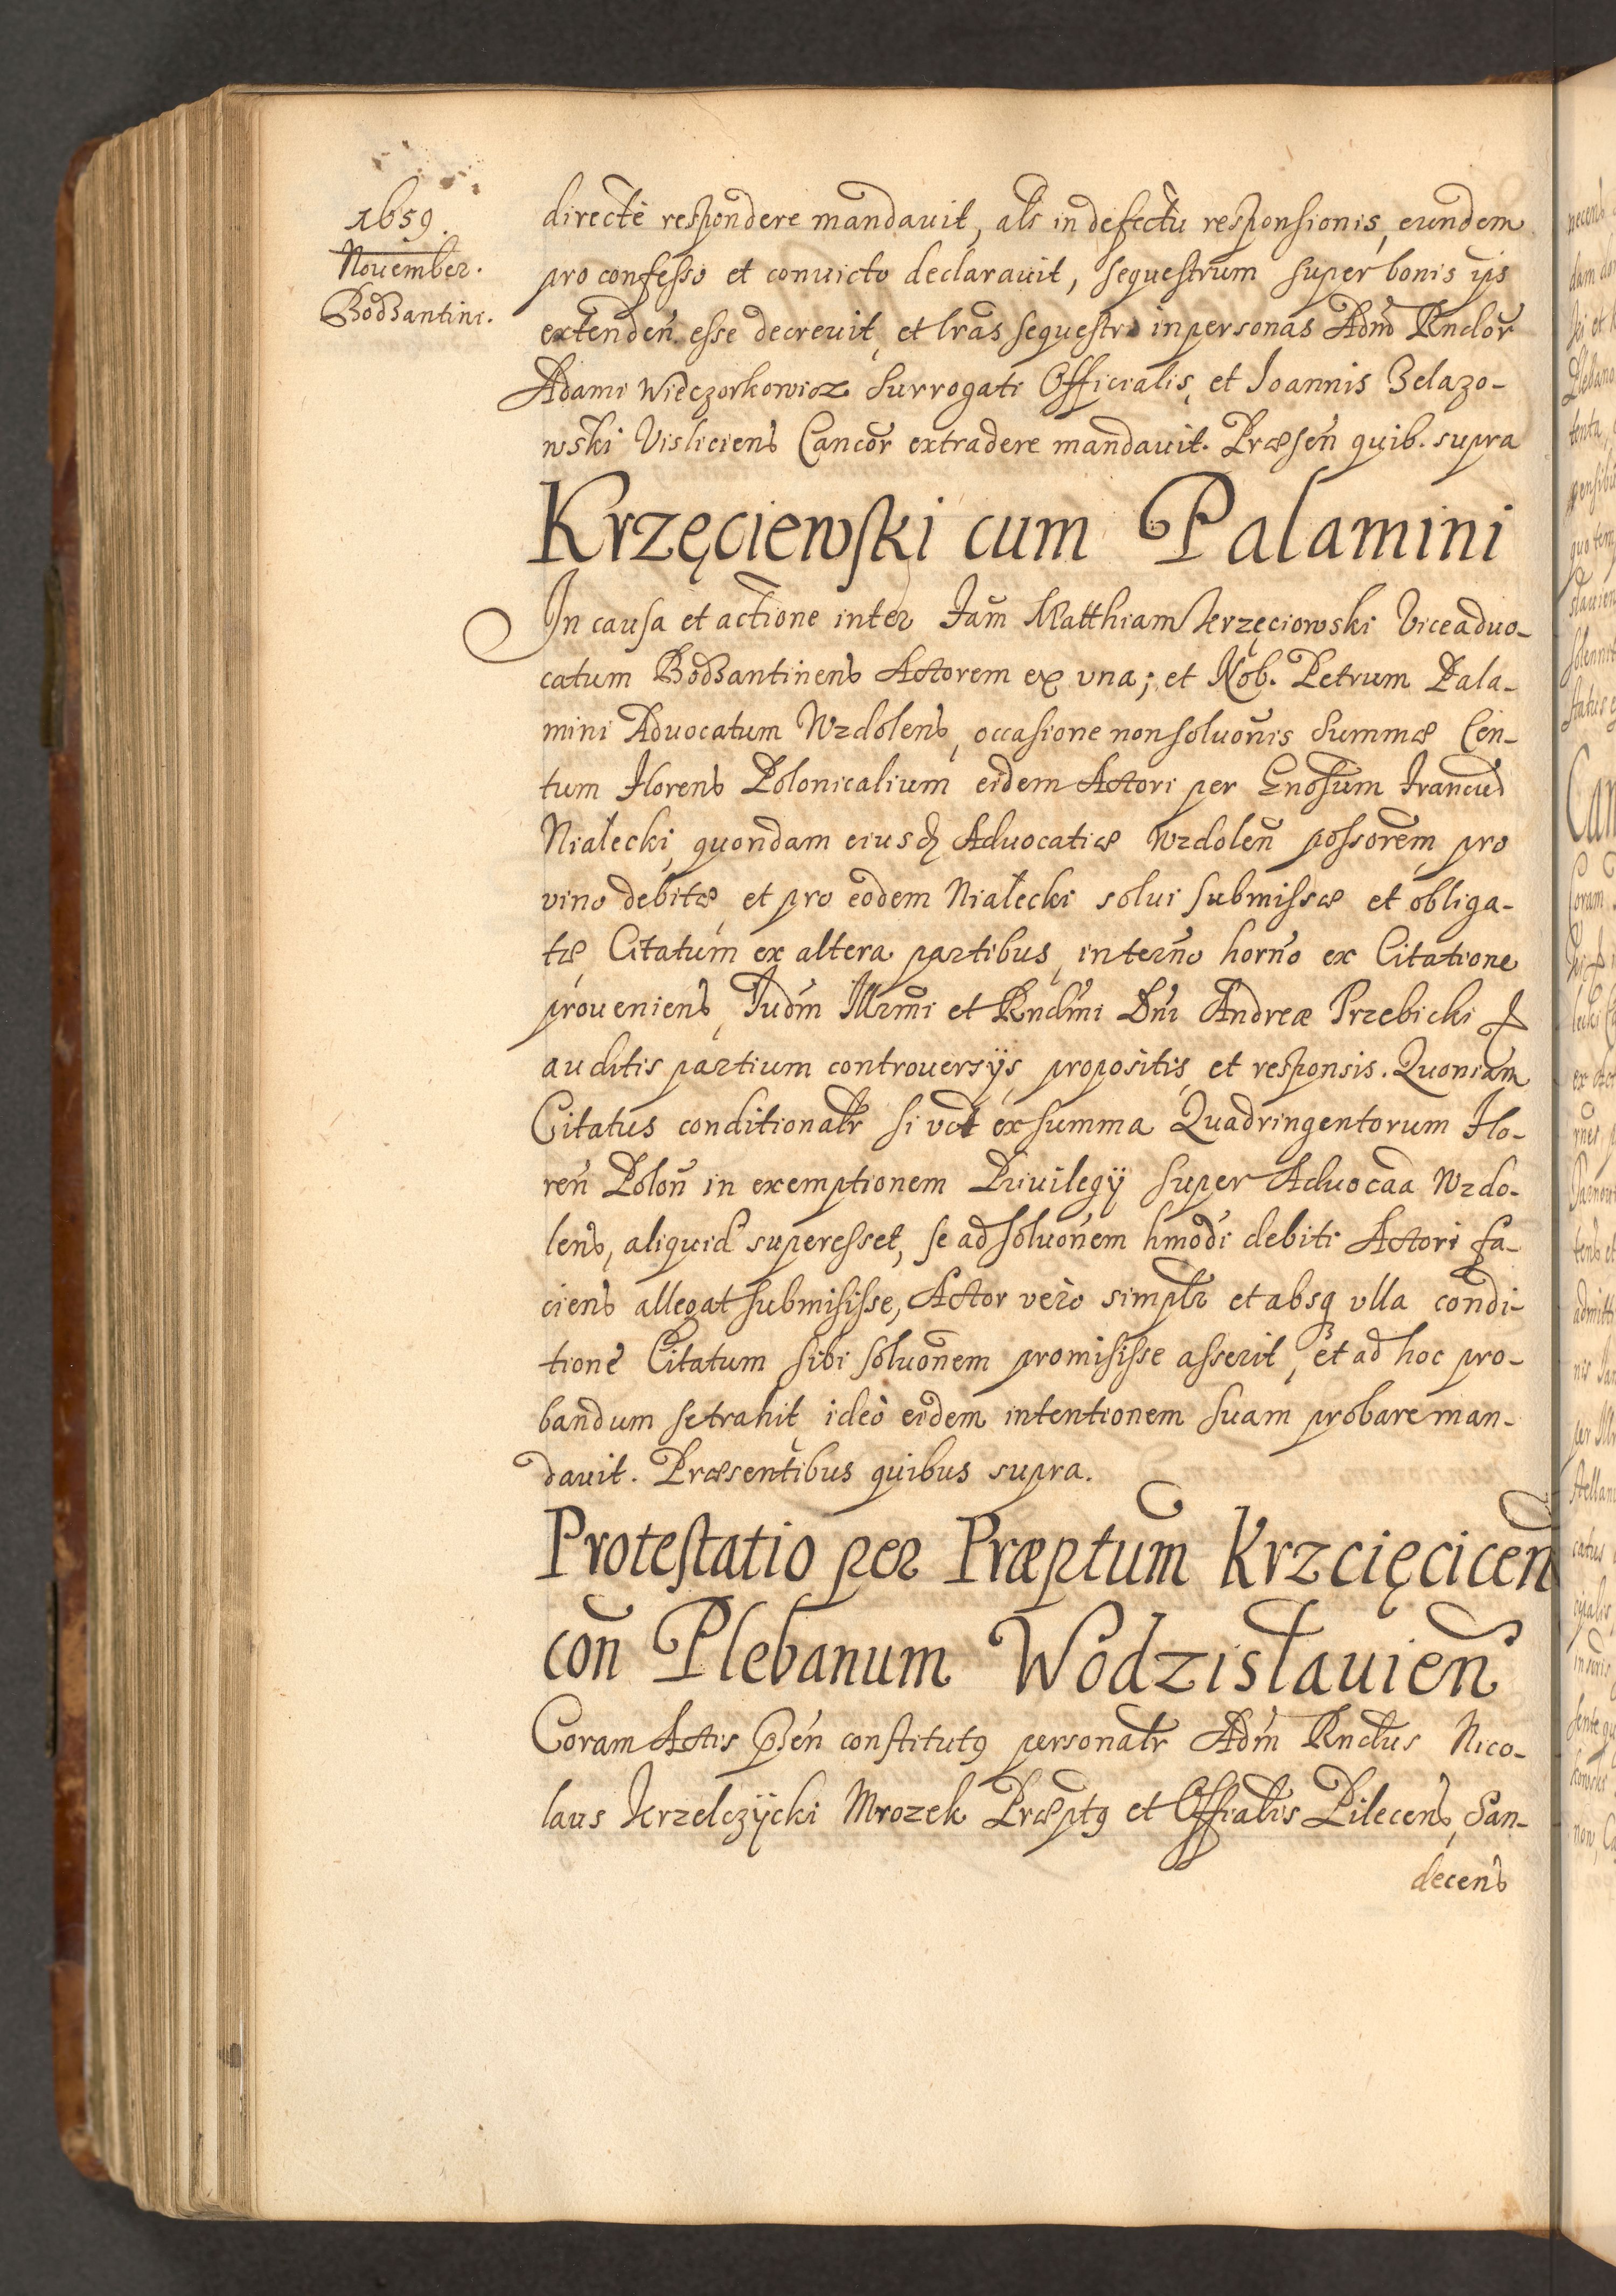 1659.
November.
Bodzantini.
directè respondere mandauit, als in defectu responsionis, eundem
pro confesso et conuicto declarauit, sequestrum super bonis ijs
extendeñ esse decreuit, et lras sequestri in personas Adm̃ Rndor̃
Adami Wieczorkowicz Surrogati Officialis, et Joannis Zelazo-
wski Visliciens Cancor̃ extradere mandauit. Præseñ quib. supra
Krzęciewski cum Palamini
In causa et actione inter Fam̃ Matthiam Krzęciowski Viceaduo-
catum Bodzantinens Actorem ex vna; et Nob. Petrum Pala-
mini Aduocatum Wzdolens, occasione non soluoñis Summæ Cen-
tum Florens Polonicalium eidem Actori per Gnosum Francum
Nialecki, quondam eiusd Aduocatiæ Wzdoleñ possorem̃, pro
vino debitæ, et pro eodem Nialecki solui submissæ et obliga-
tæ, Citatum ex altera partibus, in terño horño ex Citatione
proueniens, Judm̃ Illrmi et Rndmi Dñi Andreæ Trzebicki &
auditis partium controuersijs, propositis, et responsis. Quoniam
Citatus conditionalr̃ si vct ex summa Quadringentorum Flo-
reñ Poloñ in exemptionem Priuilegij super Aduocaa Wzdo-
lens, aliquid superesset, se ad soluoñem hmodi debiti Actori fa-
ciens allegat submisisse, Actor verò simplr et absq̃ vlla condi-
tione Citatum sibi soluoñem promisisse asserit, et ad hoc pro-
bandum se trahit, ideò eidem intentionem suam probare man-
dauit. Præsentibus quibus supra.
Protestatio per Præptum Krzcięciceñ
coñ Plebanum Wodzislauieñ
Coram Actis pseñ constitutꝰ personalr̃ Adm̃ Rndus Nico-
laus Krzelczÿcki Mrozek Præptꝰ et Offialis Pilecens, San-
decens